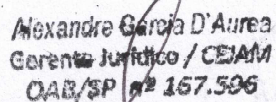 Alexandre Garcia D'Aurea
Gerente Jurídico / CEJAM
OAB/SP nº 167.596